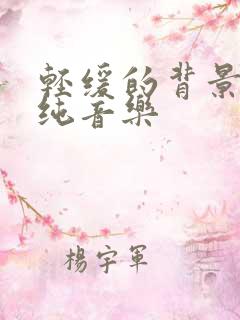 輕缓的背景
纯音樂
楊宇軍